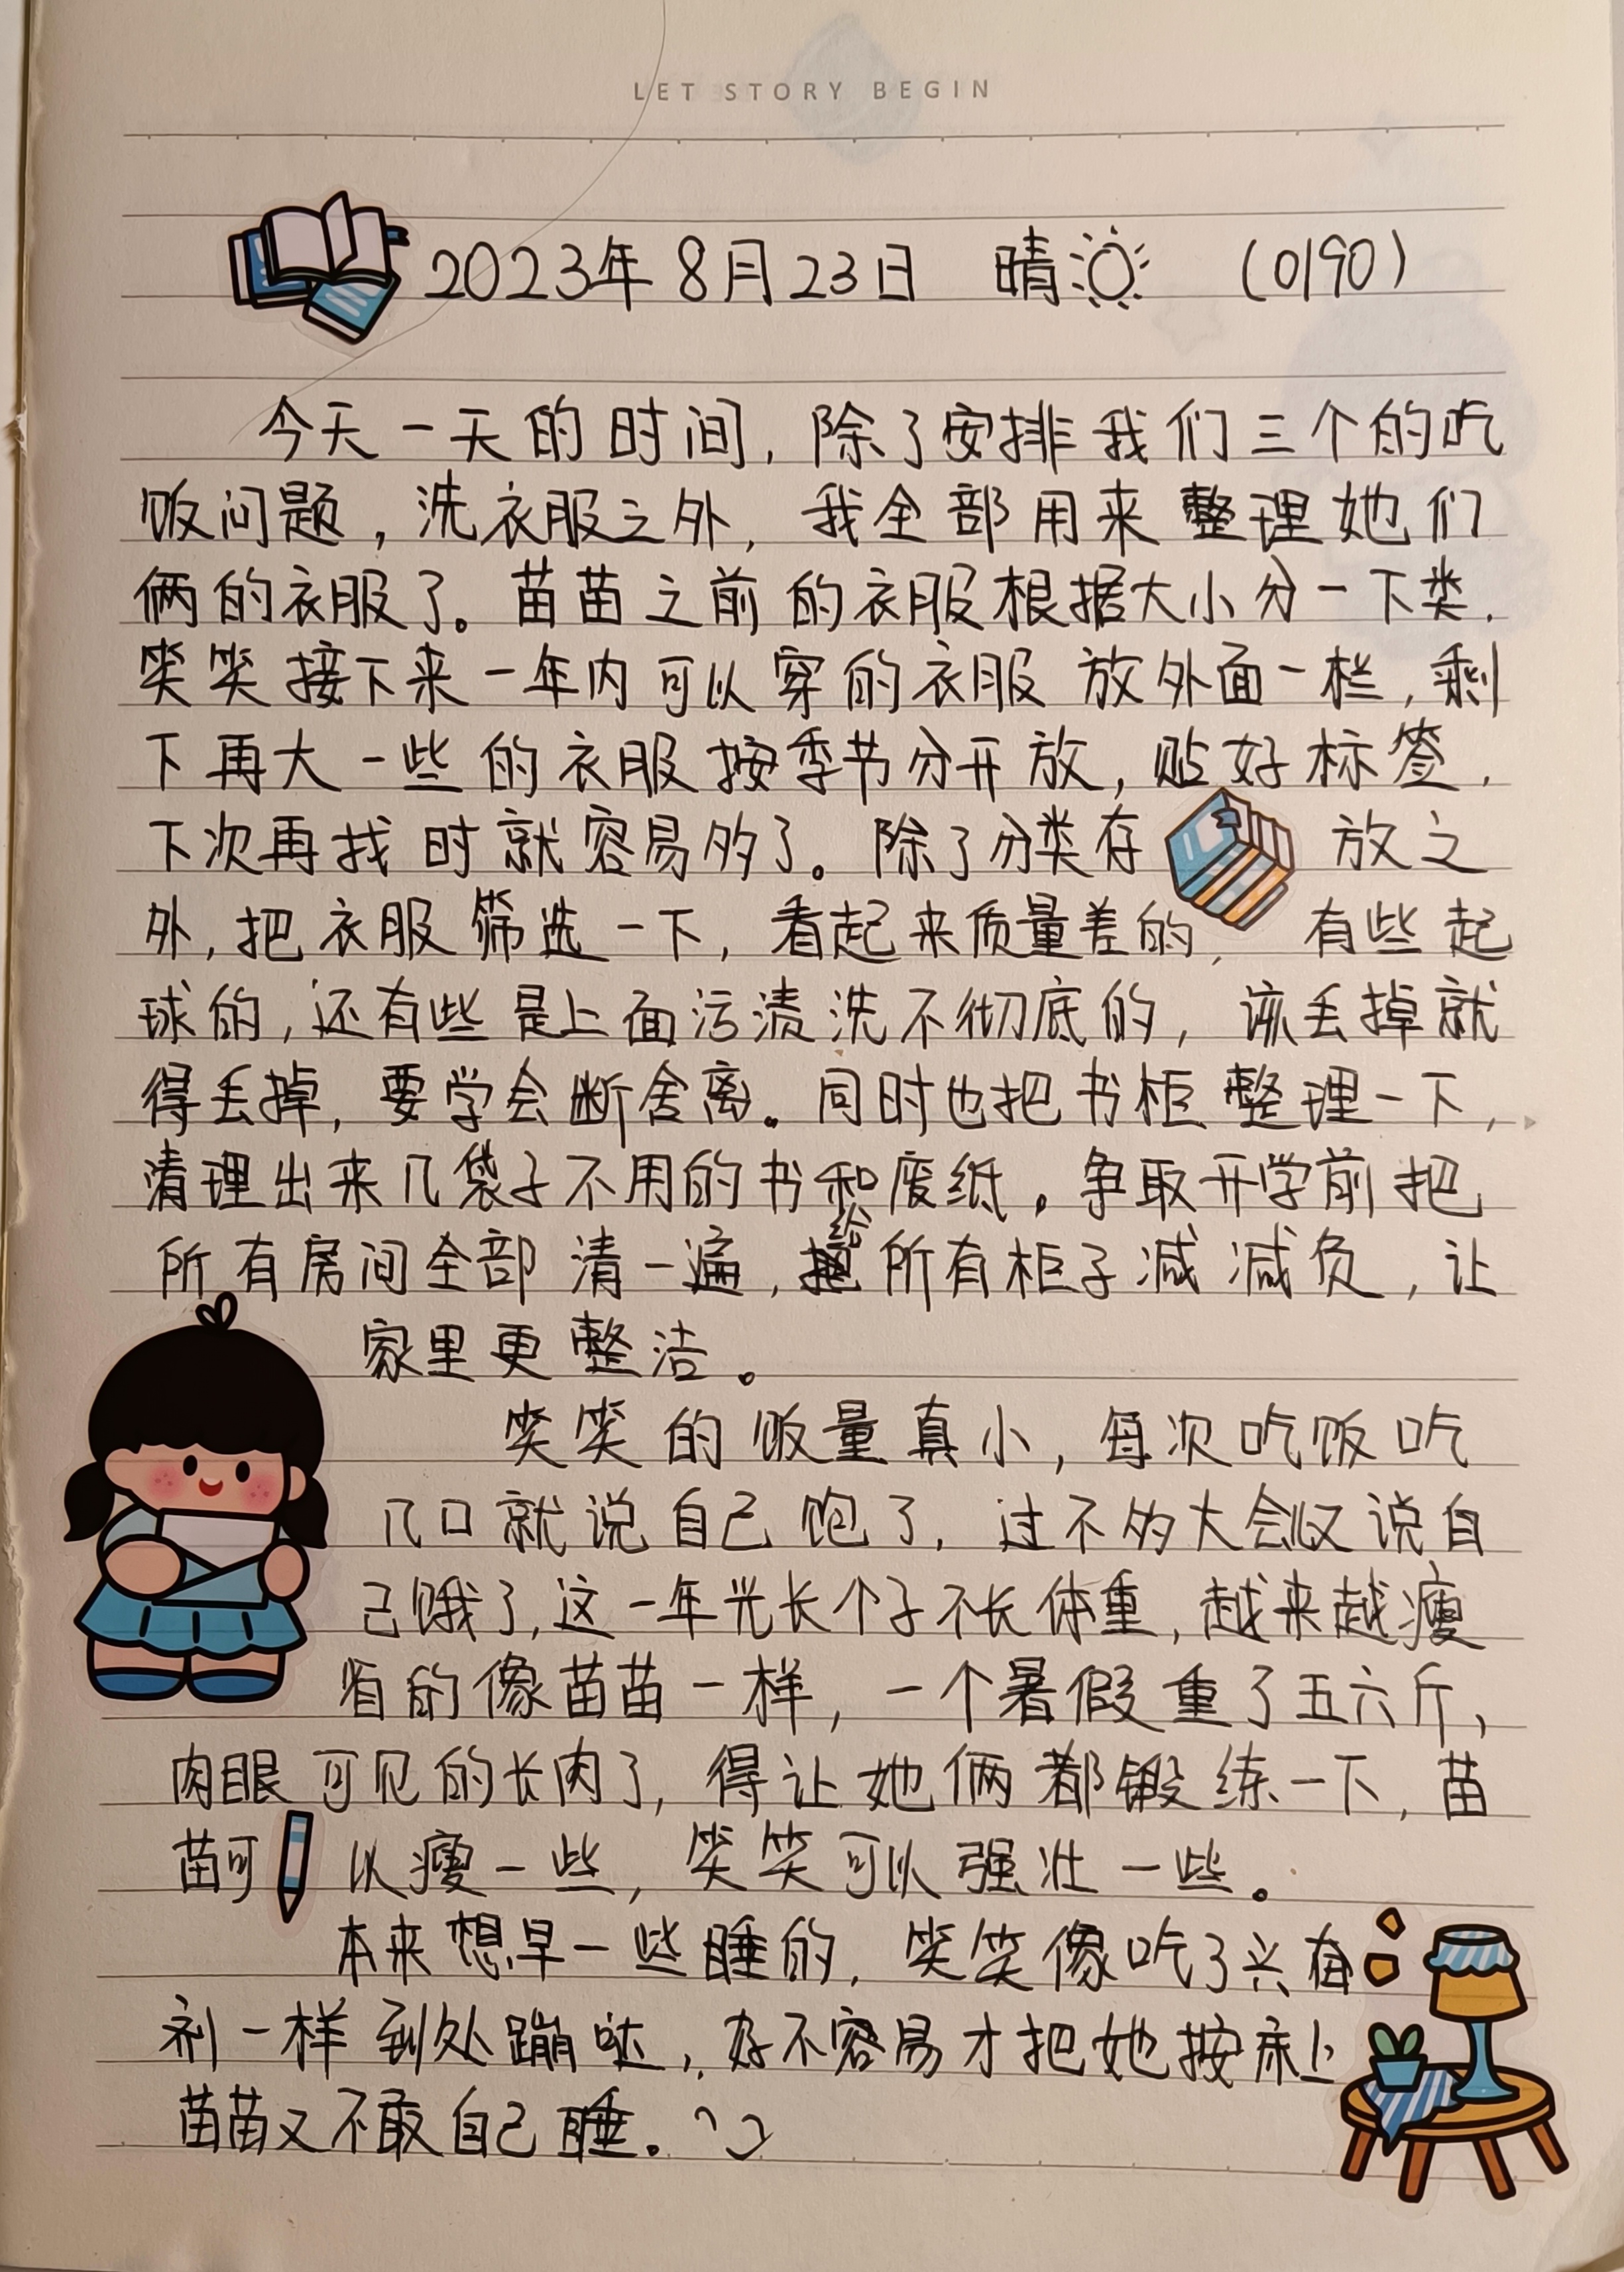 LET STORY BEGIN
2023年8月23日 晴 (0190)
今天一天的时间,除了安排我们三个的吃
饭问题,洗衣服之外,我全部用来整理她们
俩的衣服了。苗苗之前的衣服根据大小分一下类,
笑笑接下来一年内可以穿的衣服放外面一栏,剩
下再大一些的衣服按季节分开放,贴好标签,
下次再找时就容易多了。除了分类存放之
外,把衣服筛选一下,看起来质量差的,有些起
球的,还有些是上面污渍洗不彻底的,该丢掉就
得丢掉,要学会断舍离。同时也把书柜整理一下,
清理出来几袋子不用的书和废纸。争取开学前把
所有房间全部清一遍,给所有柜子减减负,让
家里更整洁。
笑笑的饭量真小,每次吃饭吃
几口就说自己饱了,过不多大会又说自
己饿了,这一年光长个子不长体重,越来越瘦
省的像苗苗一样,一个暑假重了五六斤,
肉眼可见的长肉了,得让她俩都锻练一下,苗
苗可以瘦一些,笑笑可以强壮一些。
本来想早一些睡的,笑笑像吃了兴奋
剂一样到处蹦哒,好不容易才把她按床上
苗苗又不敢自己睡。